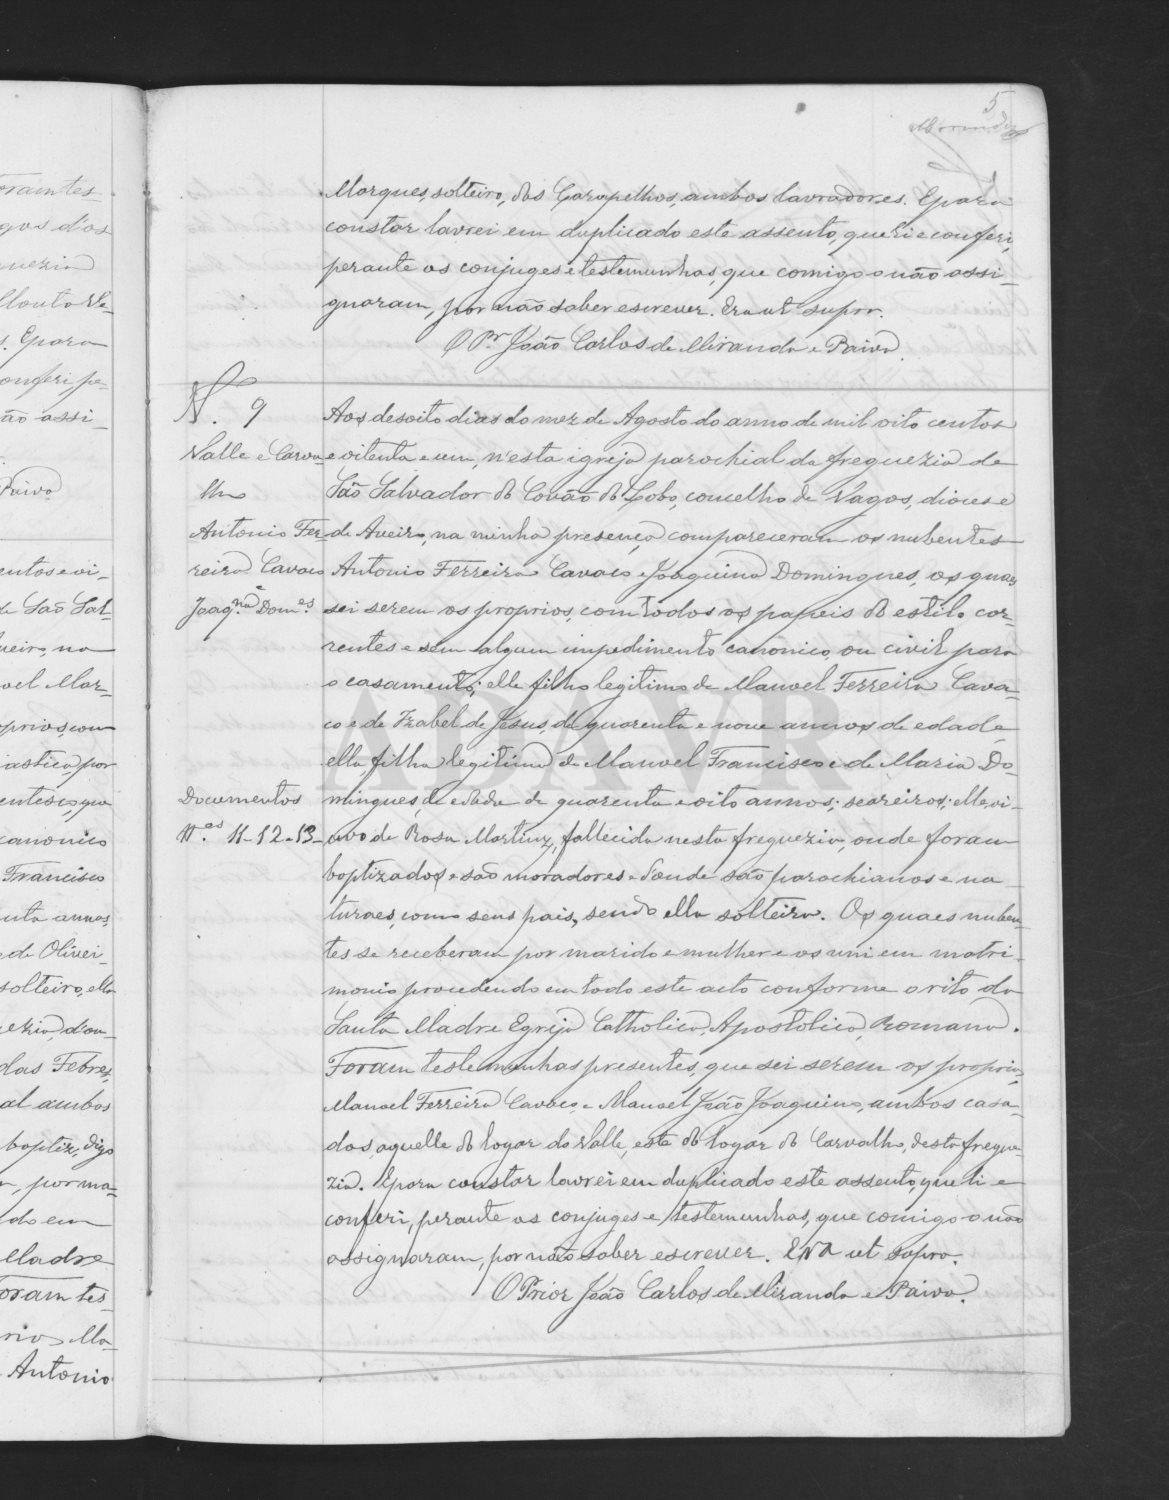 5
Miranda
Marques, solteiro, dos Carapelhos, ambos lavradores. E para
constar lavrei em duplicado este assento, que li e conferi,
perante os conjuges e testemunhas, que comigo o não assi-
gnaram, por não saber escrever. Era ut supra.
O Pr João Carlos de Miranda e Paiva.
N. 9
Valle e Carva-
lho
Antonio Fer-
reira Cavaco
e
Joaqna Domes
Aos desoito dias do mez de Agosto do anno de mil oito centos
e oitenta e um, n'esta igreja parochial da freguezia de
São Salvador do Covão do Lobo, concelho de Vagos, diocese
de Aveiro, na minha presença compareceram os nubentes
Antonio Ferreira Cavaco e Joaquina Domingues, os quaes
sei serem os proprios, com todos os papeis do estilo cor-
rentes e sem algum impedimento canonico ou civil para
o casamento; elle filho legitimo de Manoel Ferreira Cava-
co e de Izabel de Jesus, de quarenta e nove annos de edade,
ella filha legitima de Manoel Francisco e de Maria Do-
mingues, de edade de quarenta e oito annos; seareiros; elle vi-
uvo de Rosa Martins, fallecida nesta freguezia, onde foram
baptizados e são moradores e d'onde são parochianos e na-
turaes, como seus pais, sendo ella solteira. Os quaes nuben-
tes se receberam por marido e mulher e os uni em matri-
monio procedendo em todo este acto conforme o rito da
Santa Madre Egreja Catholica, Apostolica, Romana.
Foram testemunhas presentes, que sei serem os proprios,
Manoel Ferreira Cavaco e Manoel João Joaquim, ambos casa-
dos, aquelle do logar do Valle, este do logar do Carvalho, desta fregue-
zia. E para constar lavrei em duplicado este assento, que li e
conferi, perante os conjuges e testemunhas, que comigo o não
assignaram, por não saber escrever. Era ut supra.
O Prior João Carlos de Miranda e Paiva.
Documentos
N.os 11-12-13-
ADAVR